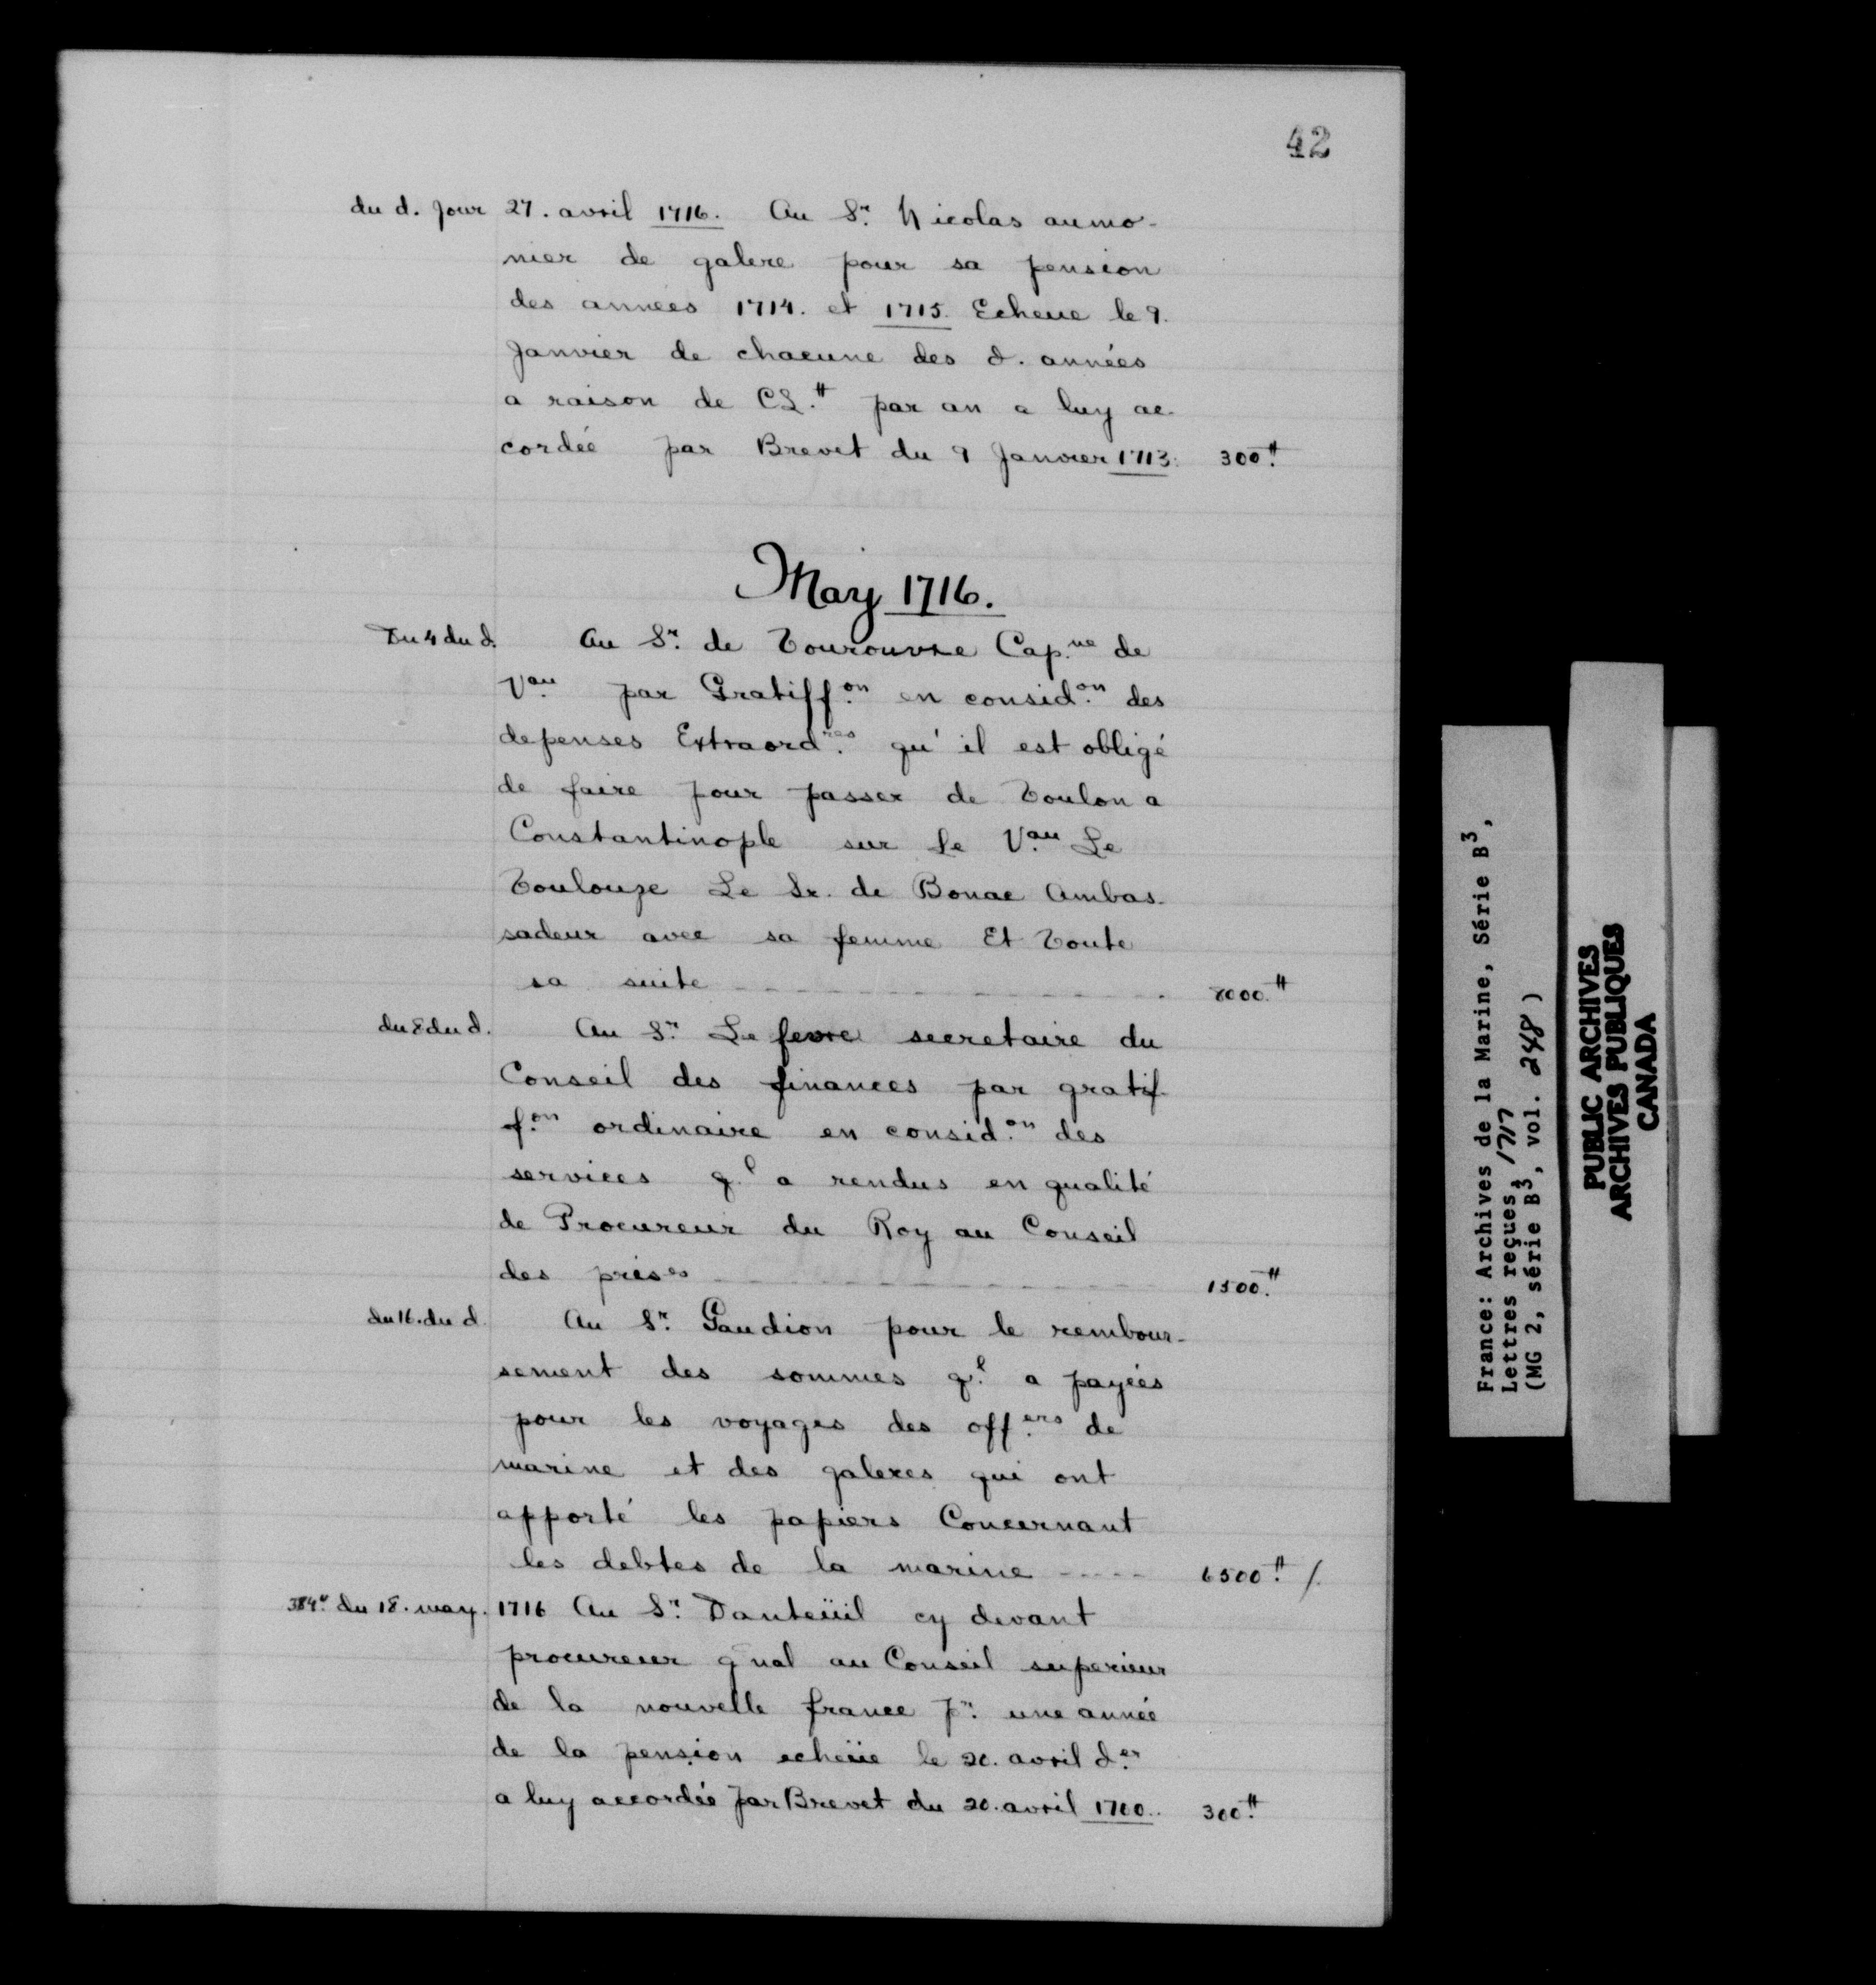 42
du d. Jour 27. avril 1716. Au Sr. Nicolas aumo-
nier de galere pour sa pension
des années 1714. et 1715. Echeue le 9.
Janvier de chacune des d. années
a raison de CL.# par an a luy ac-
cordée par Brevet du 9 Janvier 1713. 300.#
May 1716.
Du 4 du d. Au Sr. de Tourouvre Cap.ne de
V.au par Gratiff.on en consid.on des
depenses Extraord.res qu'il est obligé
de faire pour passer de Toulon a
Constantinople sur Le V.au Le
Toulouze Le Sr. de Bonac Ambas-
sadeur avec sa femme Et Toute
sa suite 8000.#
du 8 du d. Au Sr. Le fevre secretaire du
Conseil des finances par gratif-
f.on ordinaire en consid.on des
services q.l a rendus en qualité
de Procureur du Roy au Conseil
des prises 1500.#
du 16. du d. Au Sr. Gaudion pour le rembour-
sement des sommes q.l a payées
pour les voyages des off.ers de
marine et des galeres qui ont
apporté les papiers Concernant
les debtes de la marine 6500.# /.
384.# du 18. may. 1716 Au Sr. Dauteüil cy devant
procureur gnal au Conseil superieur
de la nouvelle france pr. une année
de la pension echeüe le 20. avril d.er
a luy accordée par Brevet du 20. avril 1700.. 300.#
France: Archives de la Marine, Série B3,
Lettres reçues, 1717
(MG 2, série B3, vol. 248)
PUBLIC ARCHIVES
ARCHIVES PUBLIQUES
CANADA